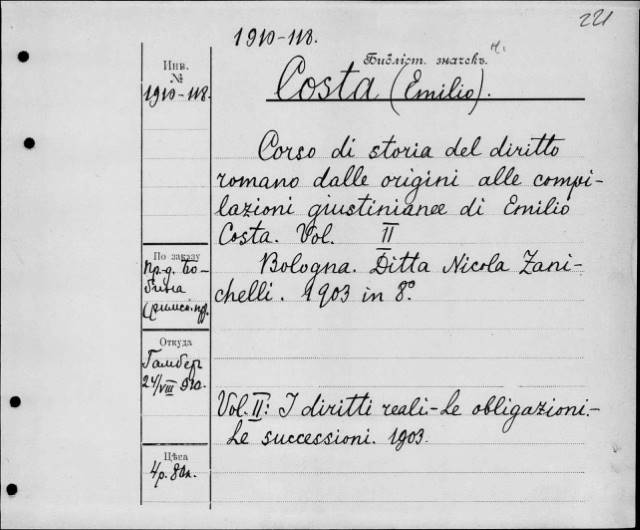 221
1910-118.
Библіот. значекъ.
Инв.
№
1910-118.
Costa (Emilio).
Corso di storia del diritto
romano dalle origini alle compi-
lazioni giustinianee di Emilio
Costa. Vol. II
По заказу
пр-д. Бо-
Bologna. Ditta Nicola Zani-
chelli. 1903 in 8º.
Откуда
Гамберъ
24/VIII 910.
Vol. II: I diritti reali-Le obligazioni.-
Le successioni. 1903.
Цѣса
4р. 80к.